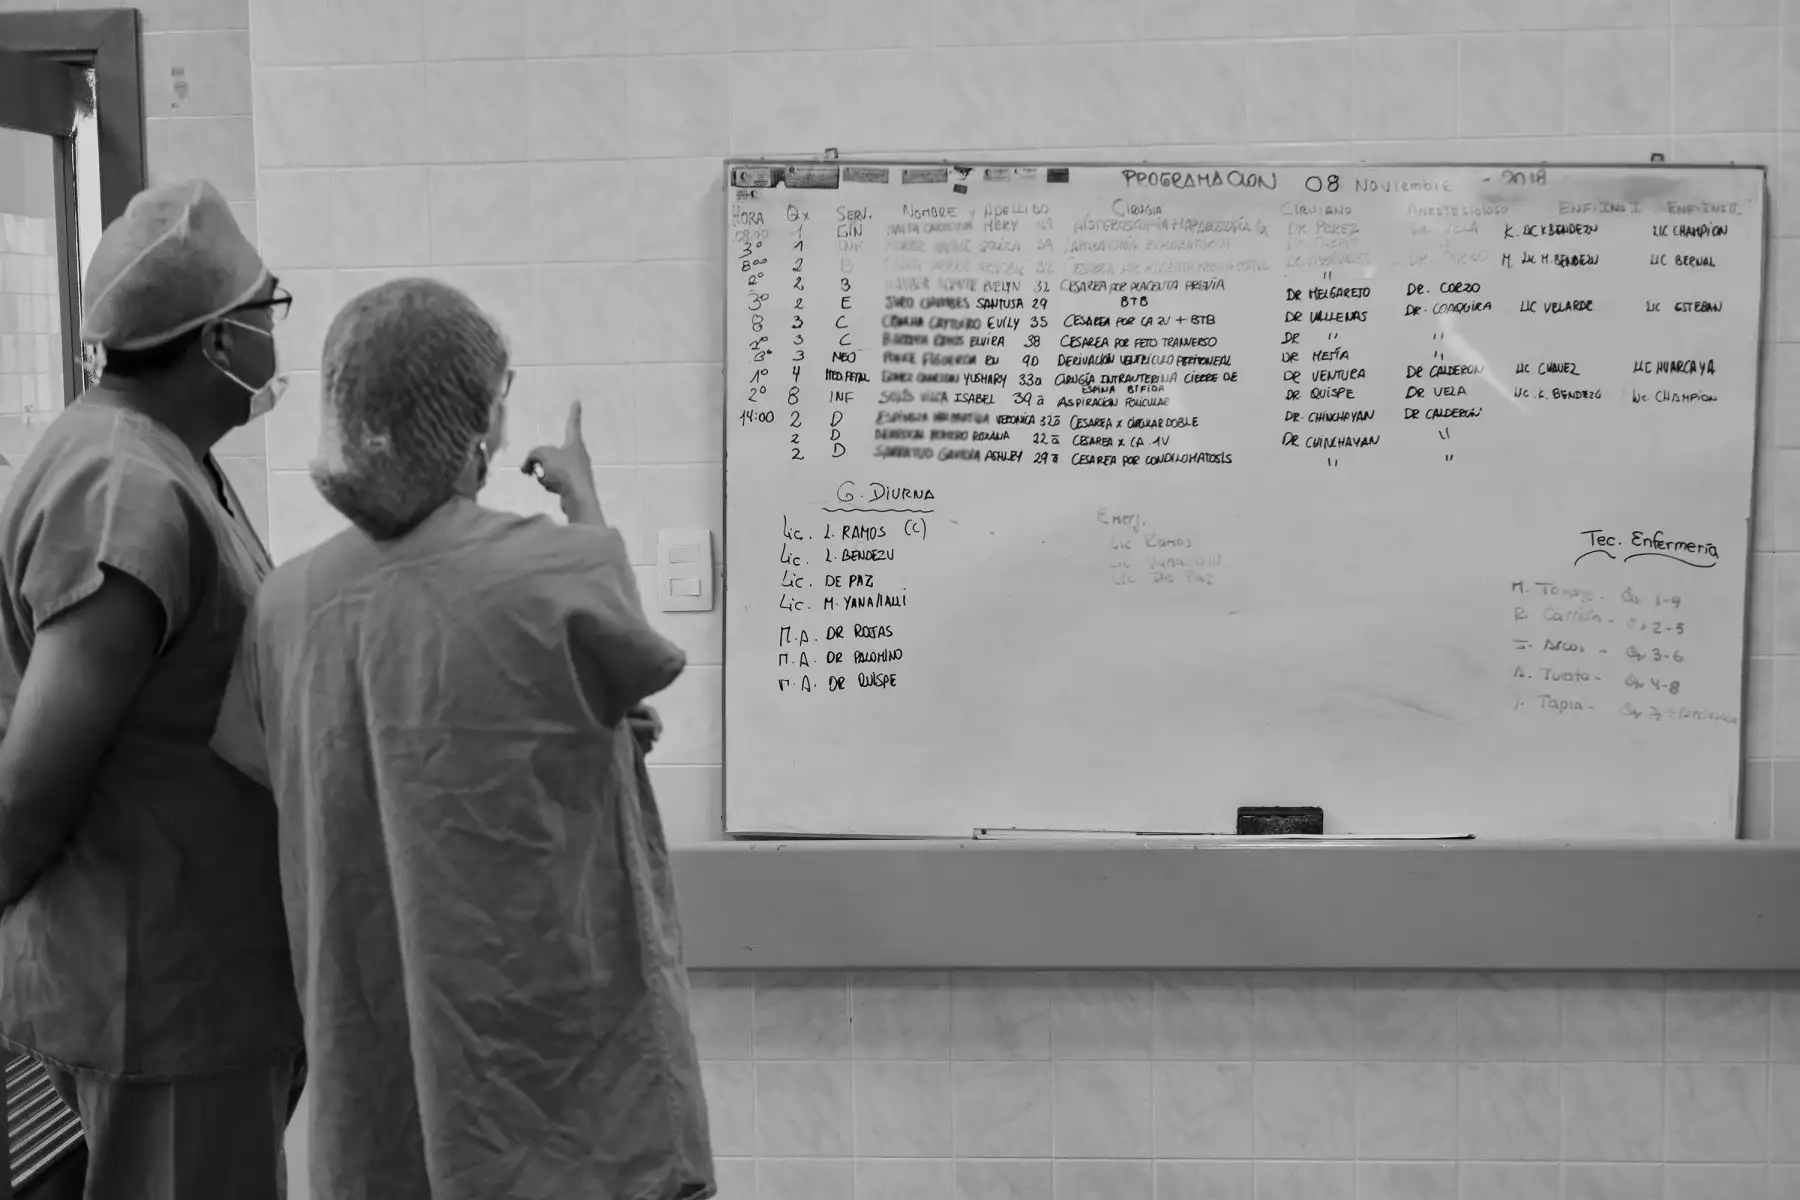 PROGRAMACION 08 Noviembre - 2018
HORA Qx SERV. NOMBRE y APELLIDO CIRUGIA CIRUJANO ANESTESIOLOGO ENF. INS I ENF. INS II
08:00 1 GIN MERY HISTEROSCOPIA + LAPAROSCOPIA DR PEREZ VELA K. LIC K BENDEZU LIC CHAMPION
3° 1 INF 39 LAPARATOMIA EXPLORATORIA
8°° 2 B 32 CESAREA M. LIC M. BENDEZU LIC BERNAL
2° 2 B EVELYN 32 CESAREA POR PLACENTA PREVIA "
3° 2 E SANTUSA 29 BTB DR MELGAREJO DR. CORZO
8 3 C EVILY 35 CESAREA POR CA 2V + BTB DR VALLENAS DR. COAQUIRA LIC VELARDE LIC ESTEBAN
2° 3 C ELVIRA 38 CESAREA POR FETO TRANVERSO DR " "
3° 3 NEO RN 9D DERIVACION VENTRICULO PERITONEAL DR MEJIA "
1° 4 MED FETAL YUSHARY 33a CIRUGÍA INTRAUTERINA CIERRE DE DR VENTURA DR CALDERON LIC CHAVEZ LIC HUARCAYA
ESPINA BIFIDA
2° 8 INF ISABEL 39 a ASPIRACION FOLICULAR DR. QUISPE DR VELA LIC. K. BENDEZU LIC. CHAMPION
14:00 2 D VERONICA 32a CESAREA X CIRCULAR DOBLE DR. CHINCHAYAN DR CALDERON
2 D ROXANA 22 a CESAREA X CA. 1V DR CHINCHAYAN "
2 D ASHLEY 29 a CESAREA POR CONDILOMATOSIS " "
G. DIURNA
Lic. L. RAMOS (C)
Lic. L. BENDEZU
Lic. DE PAZ
Lic. M. YANALLALLI
M.A. DR ROJAS
M.A. DR PALOMINO
M.A. DR QUISPE
Emerj.
Lic Ramos
Lic
Lic De Paz
Tec. Enfermería
M. - Qx 1-9
R. Carrión - Qx 2-5
- Qx 3-6
A. Tuesta - Qx 4-8
Tapia - Qx 7